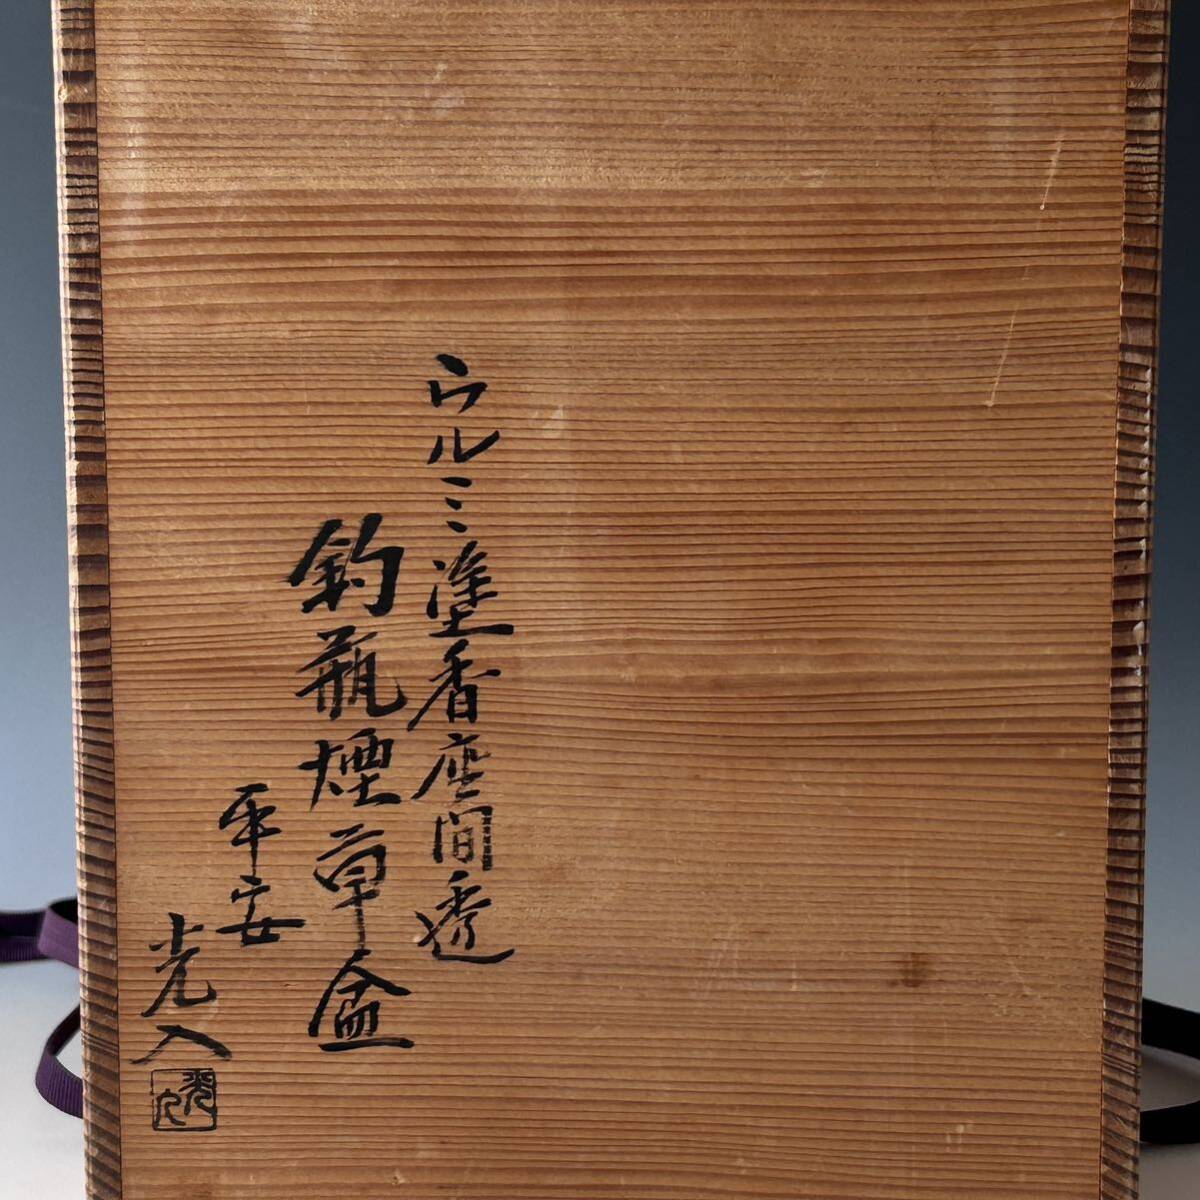 ウルミ塗香座間透
釣瓶煙草盆
平安
光入